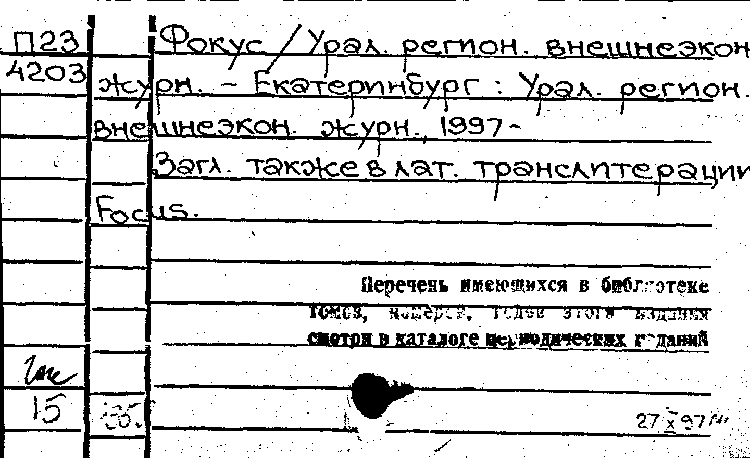 П23 Фокус / Урал. регион. внешнеэкон
4203 журн. – Екатеринбург : Урал. регион.
внешнеэкон. журн., 1997-
Загл. также в лат. транслитерации
Focus.
Перечень имеющихся в библиотеке
томов, номеров, годов этого издания
смотри в каталоге периодических изданий
15
27 X 97